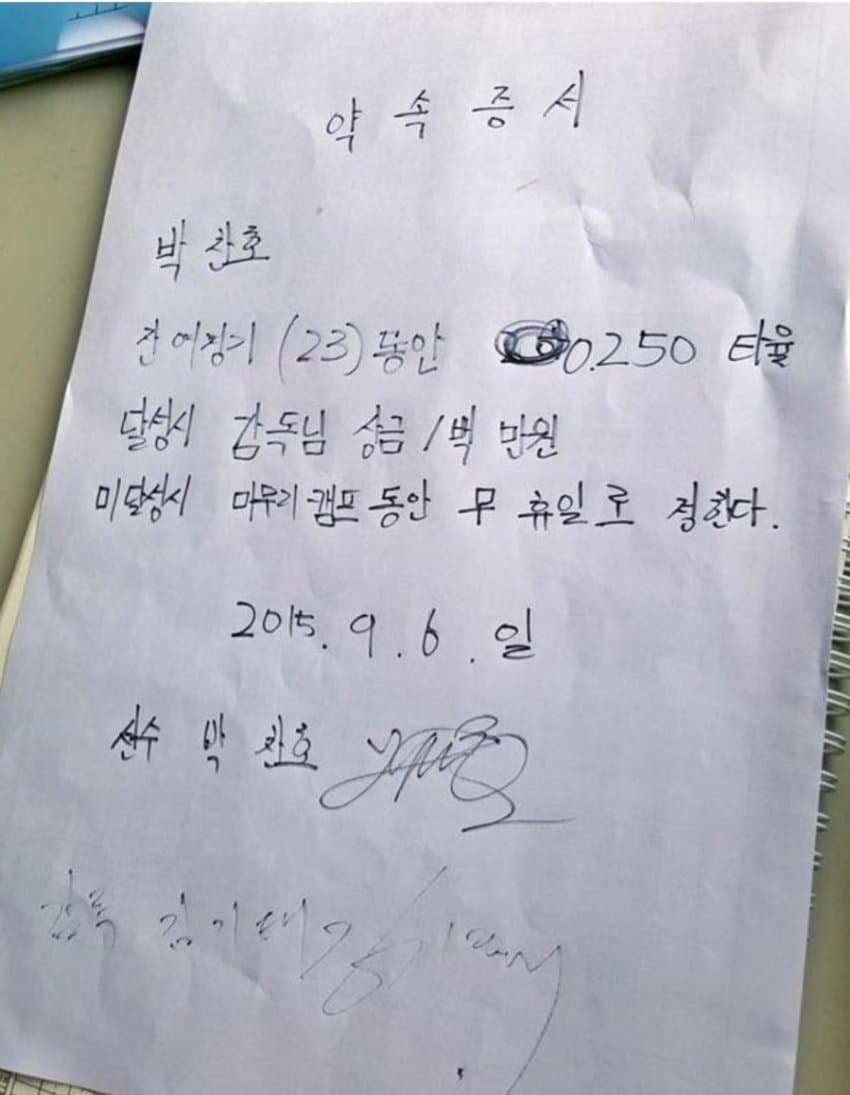 약속증서
박찬호
잔여경기 (23) 동안 0.250 타율
달성시 감독님 상금 1백 만원
미달성시 마무리캠프 동안 무 휴일로 정한다.
2015. 9. 6. 일
선수 박 찬호
감독 김기태